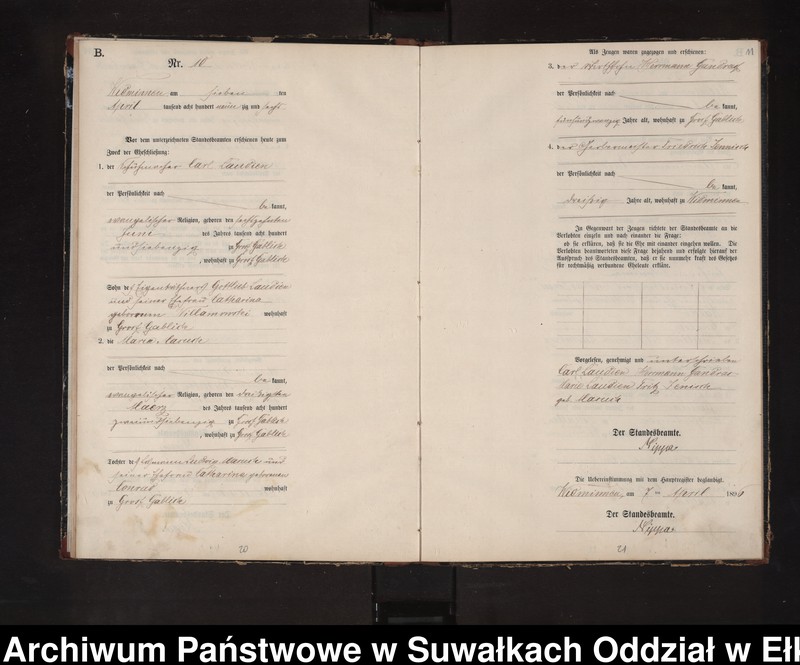 B.
Nr. 10
Widminnen am sieben ten
April tausend acht hundert neunzig und sechs
Vor dem unterzeichneten Standesbeamten erschienen heute zum
Zweck der Eheschließung:
1. der Schuhmacher Carl Laudien
der Persönlichkeit nach
be kannt,
evangelischer Religion, geboren den
Juni des Jahres tausend acht hundert
undsiebenzig zu Groß Gablick
, wohnhaft zu Groß Gablick
Sohn des Eigenkäthners Gottlieb Laudien
und seiner Ehefrau Catharina
geborenen wohnhaft
zu Groß Gablick
2. die Maria Maruck
der Persönlichkeit nach
be kannt,
evangelischer Religion, geboren den dreißigsten
Maerz des Jahres tausend acht hundert
zweiundsiebenzig zu Groß Gablick
, wohnhaft zu Groß Gablick
Tochter des Ludwig und
seiner Ehefrau Catharina geborenen
Conrad wohnhaft
zu Groß Gablick
20
Als Zeugen waren zugezogen und erschienen:
41
3. der Hermann
der Persönlichkeit nach
be kannt,
fünfundzwanzig Jahre alt, wohnhaft zu Groß Gablick
4. der
der Persönlichkeit nach
be kannt,
dreißig Jahre alt, wohnhaft zu Widminnen
In Gegenwart der Zeugen richtete der Standesbeamte an die
Verlobten einzeln und nach einander die Frage:
ob sie erklären, daß sie die Ehe mit einander eingehen wollen. Die
Verlobten beantworteten diese Frage bejahend und erfolgte hierauf der
Ausspruch des Standesbeamten, daß er sie nunmehr kraft des Gesetzes
für rechtmäßig verbundene Eheleute erkläre.
Vorgelesen, genehmigt und unterschrieben
Carl Laudien Hermann
Marie Laudien Fritz
geb.
Der Standesbeamte.
Nippa
Die Uebereinstimmung mit dem Hauptregister beglaubigt.
Widminnen, am 7ten April 1896
Der Standesbeamte.
Nippa
21
Archiwum Państwowe w Suwałkach Oddział w Eł